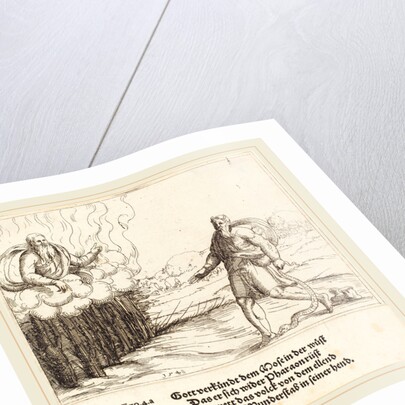 1548
Gott verkündt dem Mose in der wüst
Das er sich wider Pharaon rüst
das volck von dem elend
Wunderstab in seiner hend.